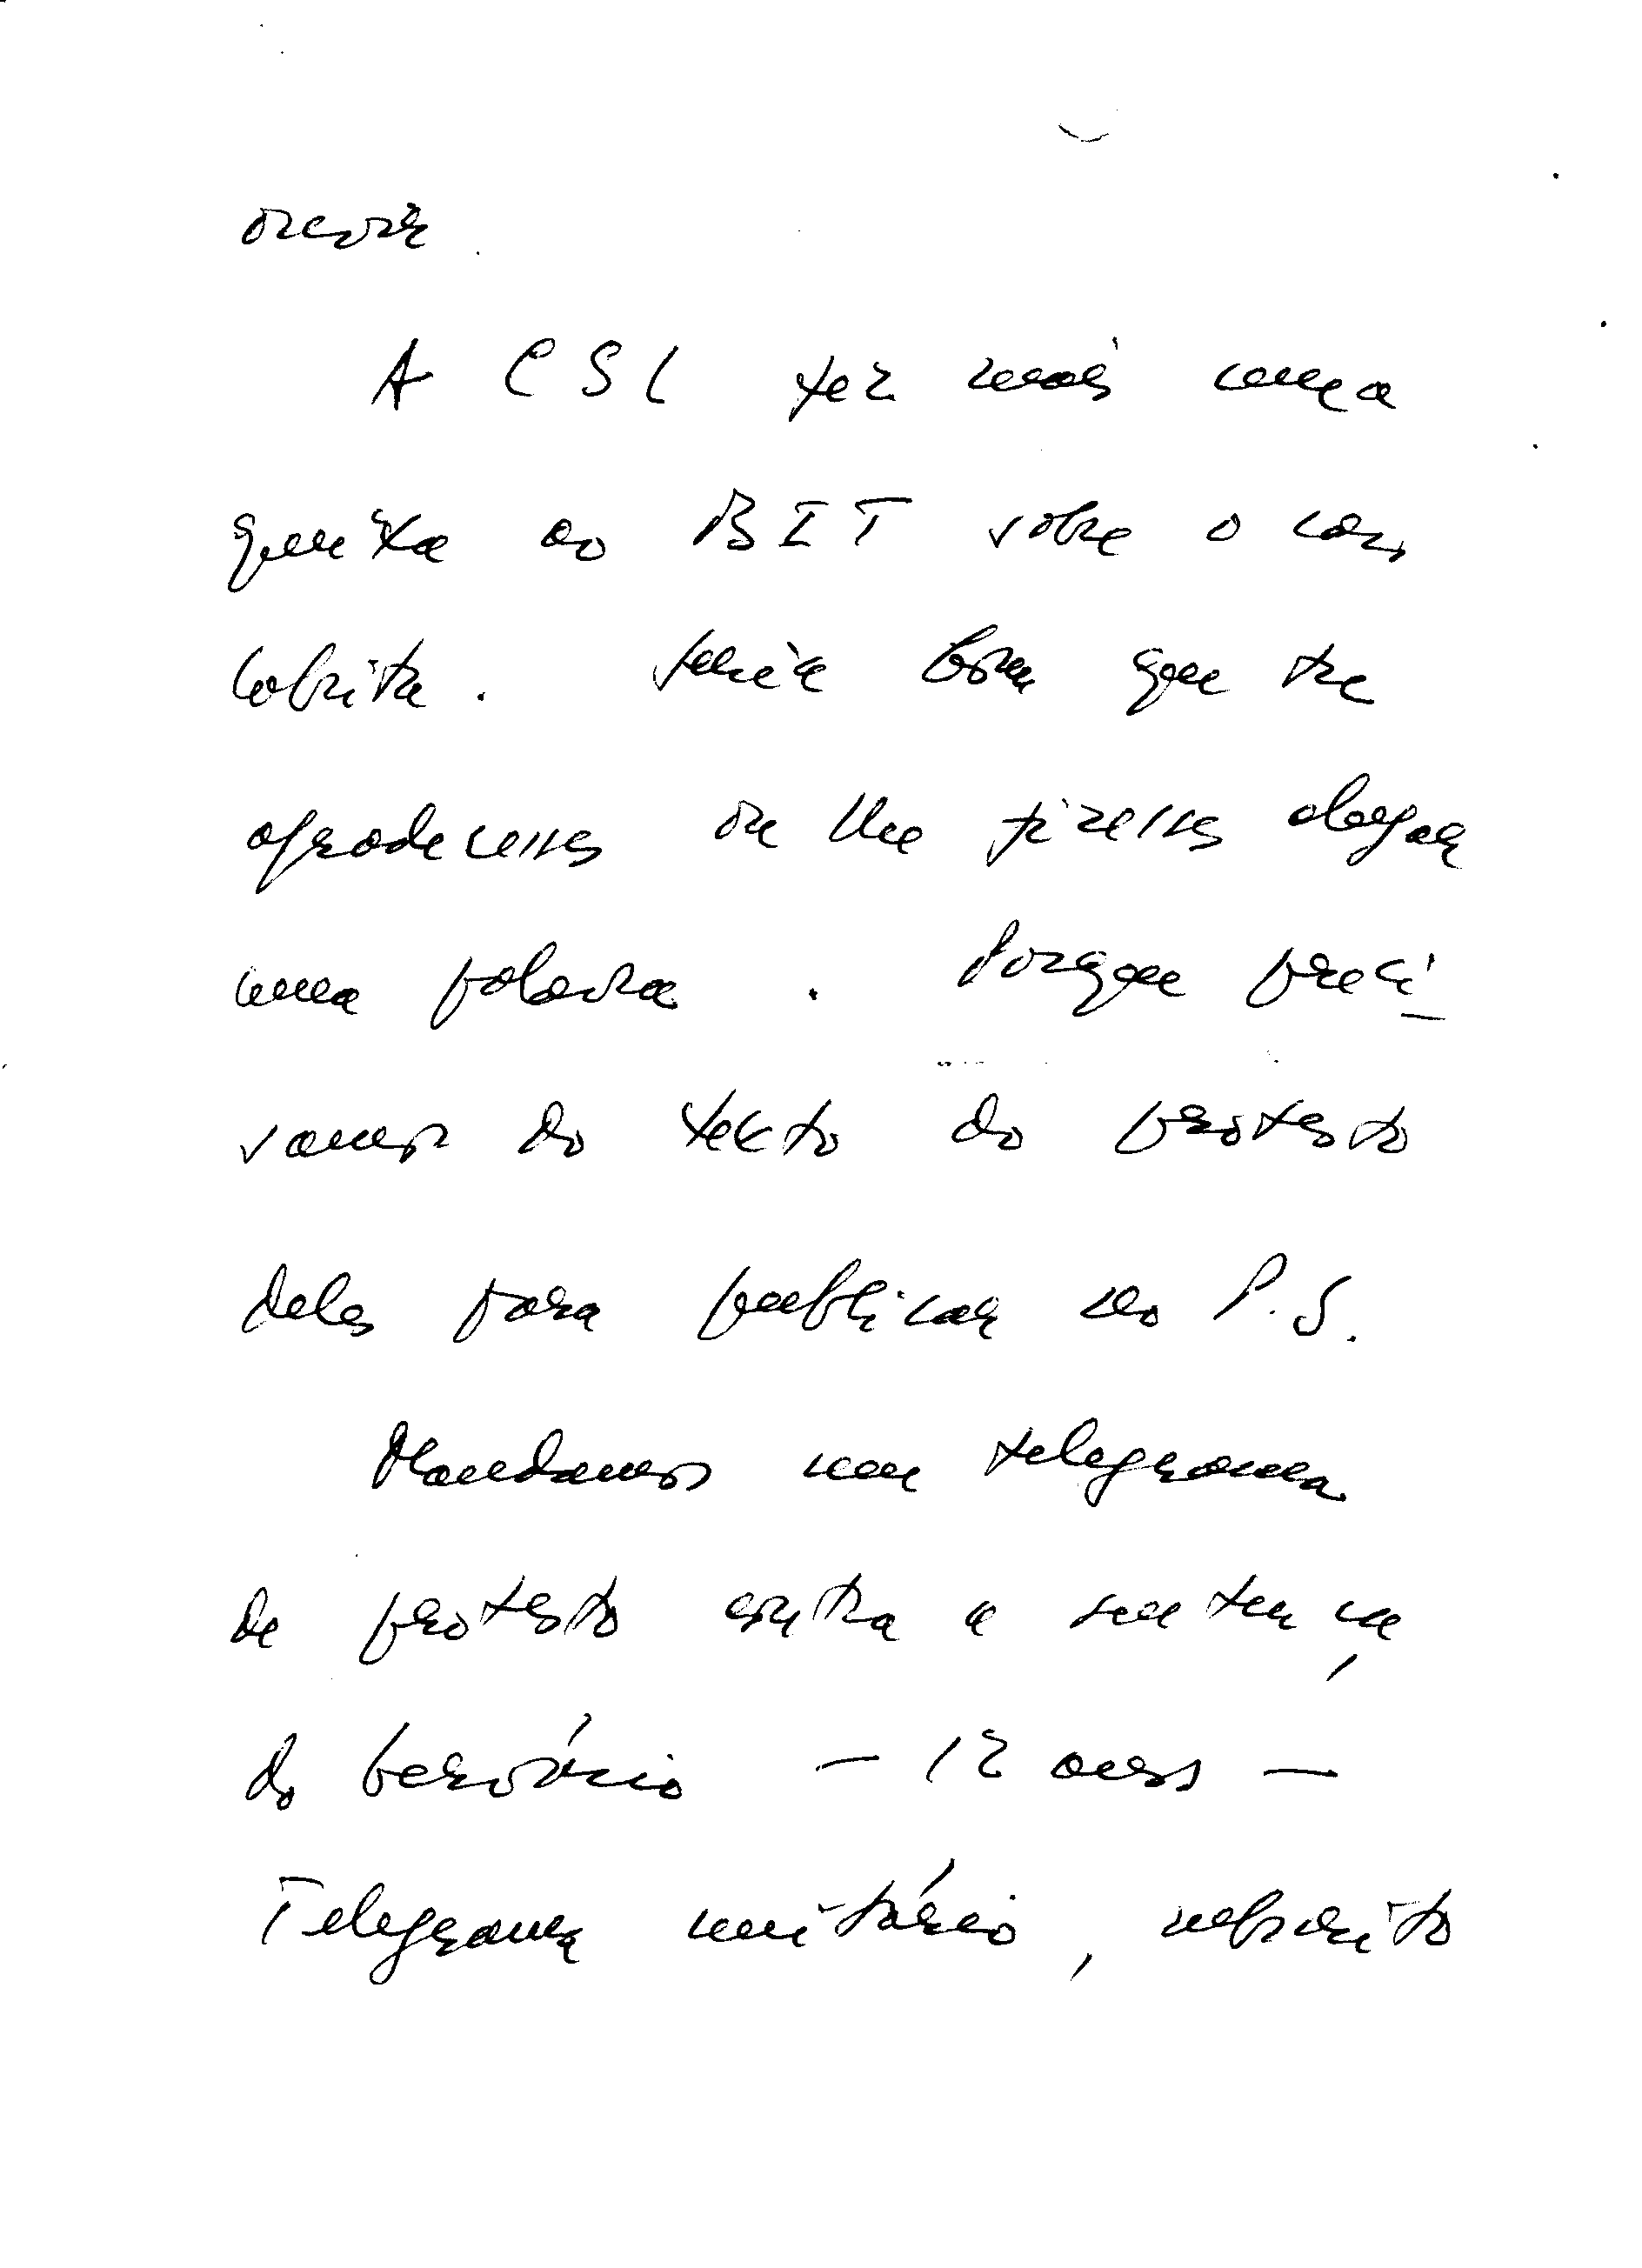 A CSL fez mais uma
queixa ao BIT sobre o caso
Cabrita. Seria bom que
agradecesses ou lhe fizesses chegar
uma palavra. Porque preci
samos do texto do protesto
deles para publicar no P.S.
Mandamos um telegrama
de protesto contra a sentença
do Gervásio — 12 anos —
Telegrama unitário, subscrito